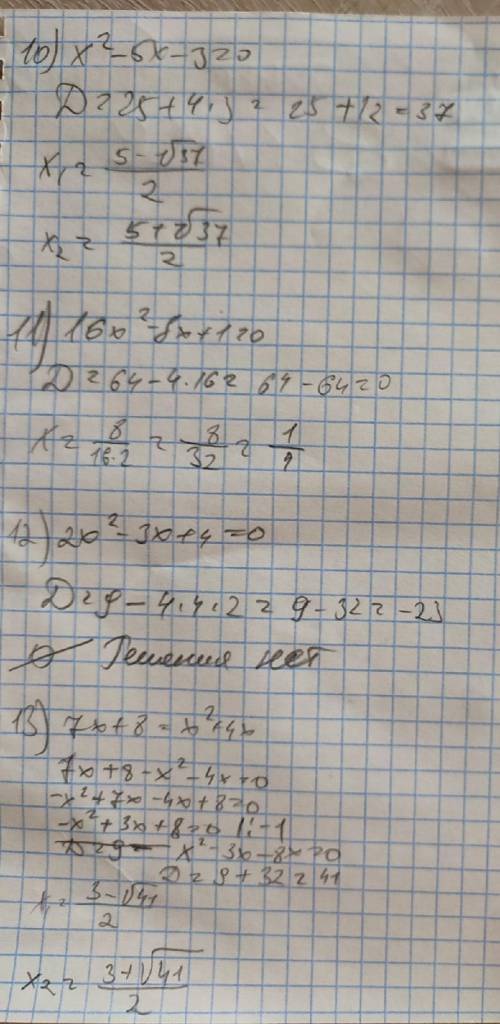 10) x² - 5x - 3 = 0
D = 25 + 4·3 = 25 + 12 = 37
x₁ = (5 - √37)/2
x₂ = (5 + √37)/2
11) 16x² - 8x + 1 = 0
D = 64 - 4·16 = 64 - 64 = 0
x = 8/(16·2) = 8/32 = 1/4
12) 2x² - 3x + 4 = 0
D = 9 - 4·4·2 = 9 - 32 = -23
∅ Решения нет
13) 7x + 8 = x² + 4x
7x + 8 - x² - 4x = 0
-x² + 7x - 4x + 8 = 0
-x² + 3x + 8 = 0 |: -1
D = 9 - x² - 3x - 8x = 0
D = 9 + 32 = 41
x₁ = (3 - √41)/2
x₂ = (3 + √41)/2